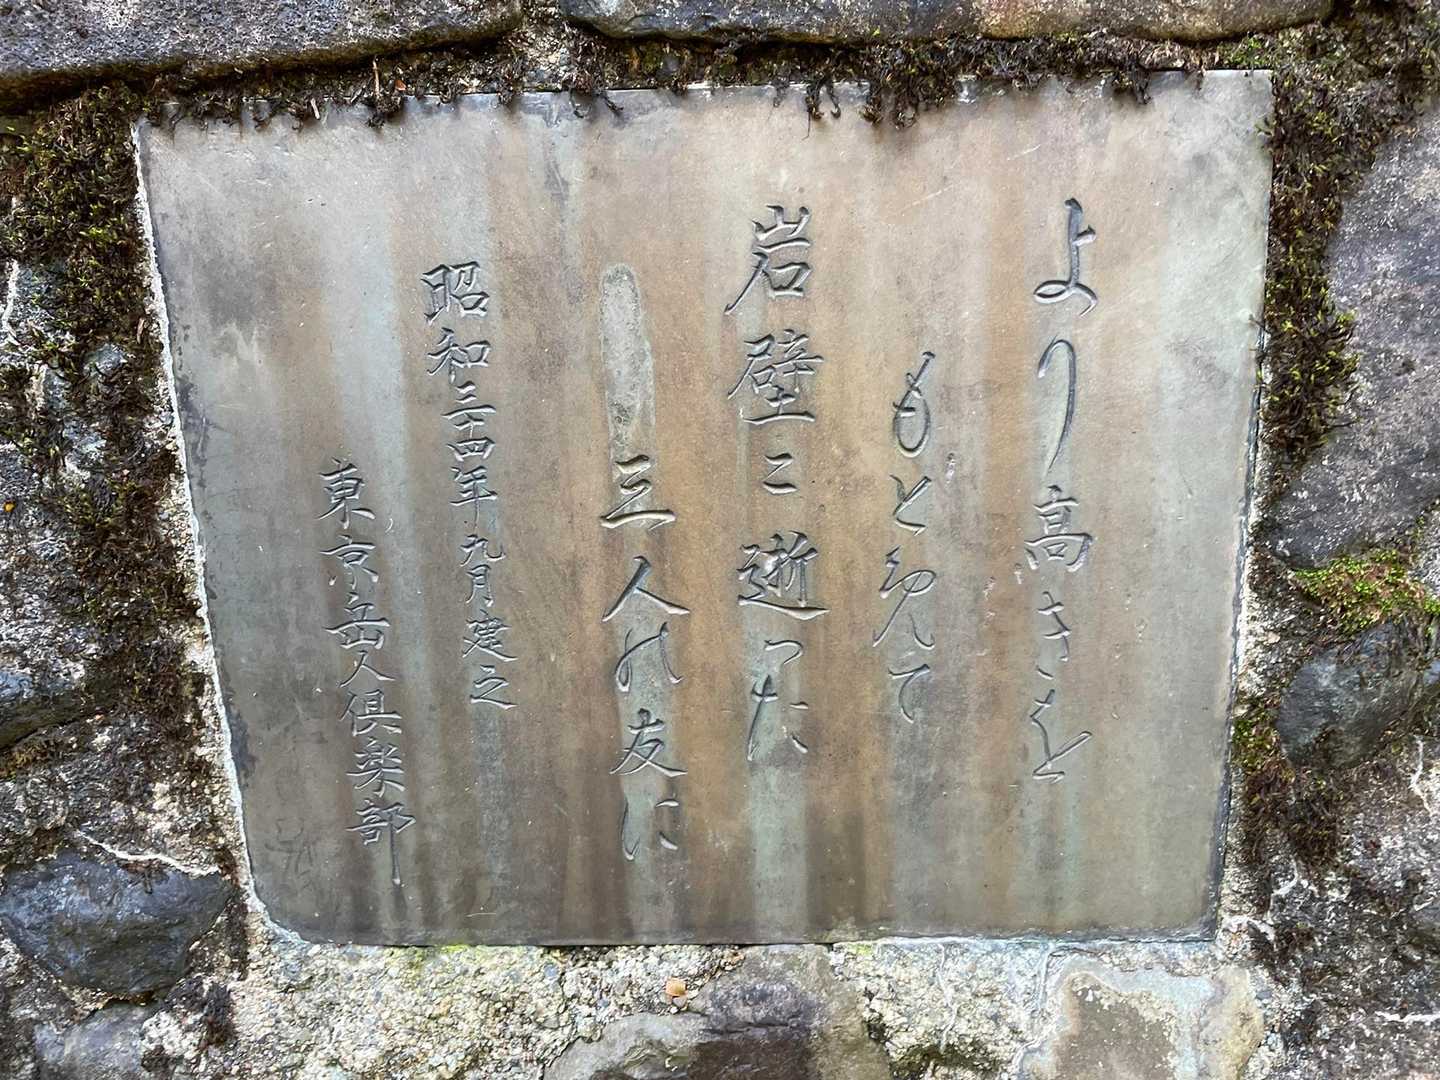 より高さを
もとめて
岩壁に逝った
三人の友に
昭和三十四年九月建之
東京岳人倶楽部